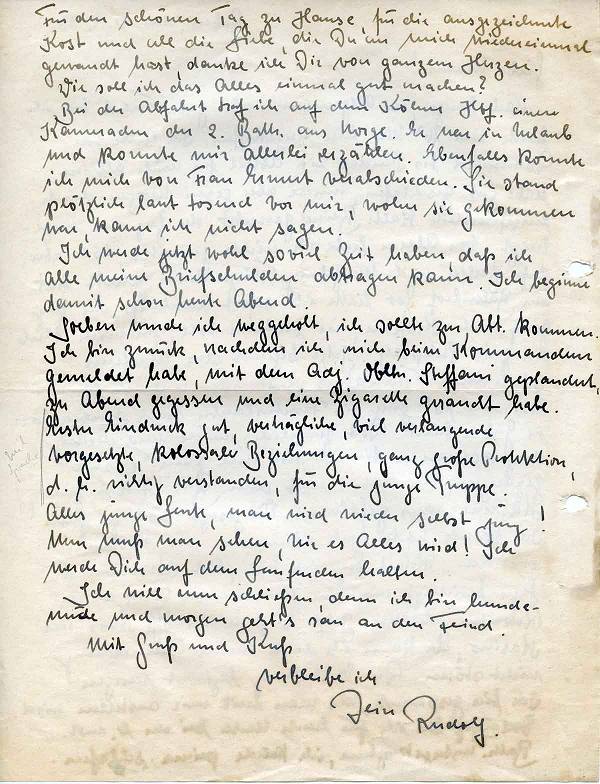 Für den schönen Tag zu Hause, für die ausgezeichnete
Kost und all die Liebe, die Du an mich wiedereinmal
gewandt hast, danke ich Dir von ganzem Herzen.
Wie soll ich das Alles einmal gut machen?
Bei der Abfahrt traf ich auf dem Kölner Hbf. einen
Kameraden der 2. Battr. aus Norge. Er war in Urlaub
und konnte mir allerlei erzählen. Ebenfalls konnte
ich mich von Frau verabschieden. Sie stand
plötzlich laut tosend vor mir, woher sie gekommen
war, kann ich nicht sagen.
Ich werde jetzt wohl soviel Zeit haben, daß ich
alle meine Briefschulden abtragen kann. Ich beginne
damit schon heute Abend.
Soeben wurde ich weggeholt, ich sollte zur Abt. kommen.
Ich bin zurück, nachdem ich mich beim Kommandeur
gemeldet habe, mit dem Adj. Obltn. Steffani geplaudert,
zu Abend gegessen und eine Zigarette geraucht habe.
Erster Eindruck gut, verträgliche, viel verlangende
Vorgesetzte, kolossale Beziehungen, ganz große Protektion,
d. h. richtig verstanden, für die junge Truppe.
Alles junge Leute, man wird wieder selbst jung!
Nun muß man sehen, wie es Alles wird! Ich
werde Dich auf dem Laufenden halten.
Ich will nun schließen, denn ich bin hunde-
müde und morgen geht's ran an den Feind.
Mit Gruß und Kuß
verbleibe ich
Dein Rudolf.